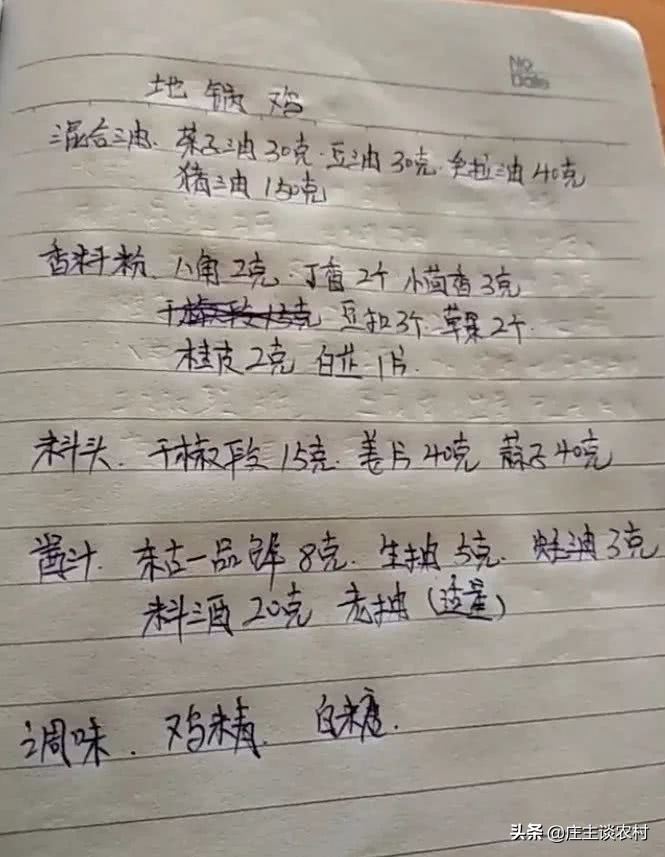 No.
Date
地锅鸡
混合油. 菜子油30克. 豆油30克. 色拉油40克
猪油150克
香料粉. 八角2克. 丁香2个 小茴香3克
干椒段15克 豆扣3个. 草果2个.
桂皮2克 白芷1片.
料头. 干椒段15克. 姜片40克 蒜子40克
酱汁. 东古一品鲜8克. 生抽5克. 蚝油3克
料酒20克 老抽(适量)
调味. 鸡精. 白糖.
头条 @庄主谈农村